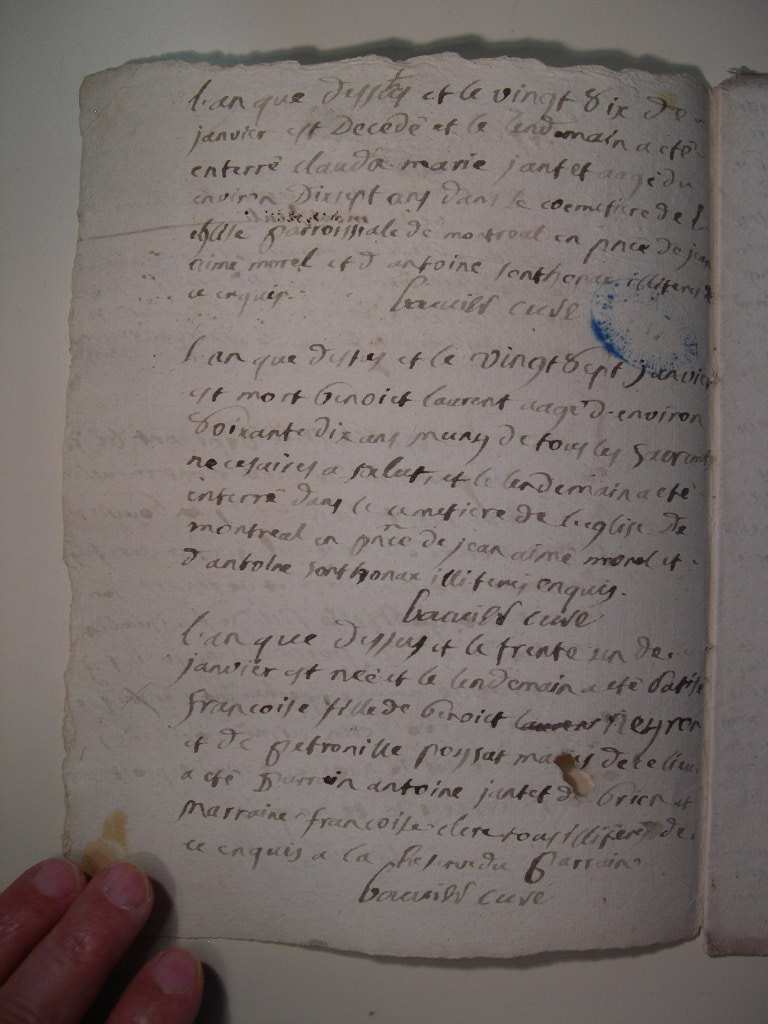 l'an que dessus et le vingt six de
janvier est Decedé et le lendemain a eté
enterré claude marie jantet aagé du
environ Dixsept ans dans le coemetiere de l
eglise parroissiale de montreal en pnce de jean
aimé morel et d antoine sonthonax illiteres de
ce enquis.
curé
l'an que dessus et le vingt sept janvier
est mort benoict laurent aagé d'environ
soixante dix ans muny de tous les sacrements
necesaires a salut, et le lendemain a eté
interré dans le cemetiere de l'eglise de
montreal en pnce de jean aimé morel et
d'antoine sonthonax illiteres enquis.
curé
l'an que dessus et le trente un de
janvier est neé et le lendemain a eté batisé
francoise fille de benoict laurent neyron
et de petronille poysat mariés de ce lieu
a eté parrain antoine jantet de brion et
marraine francoise clerc tous illiteres de
ce enquis a la reserve du parrain
curé